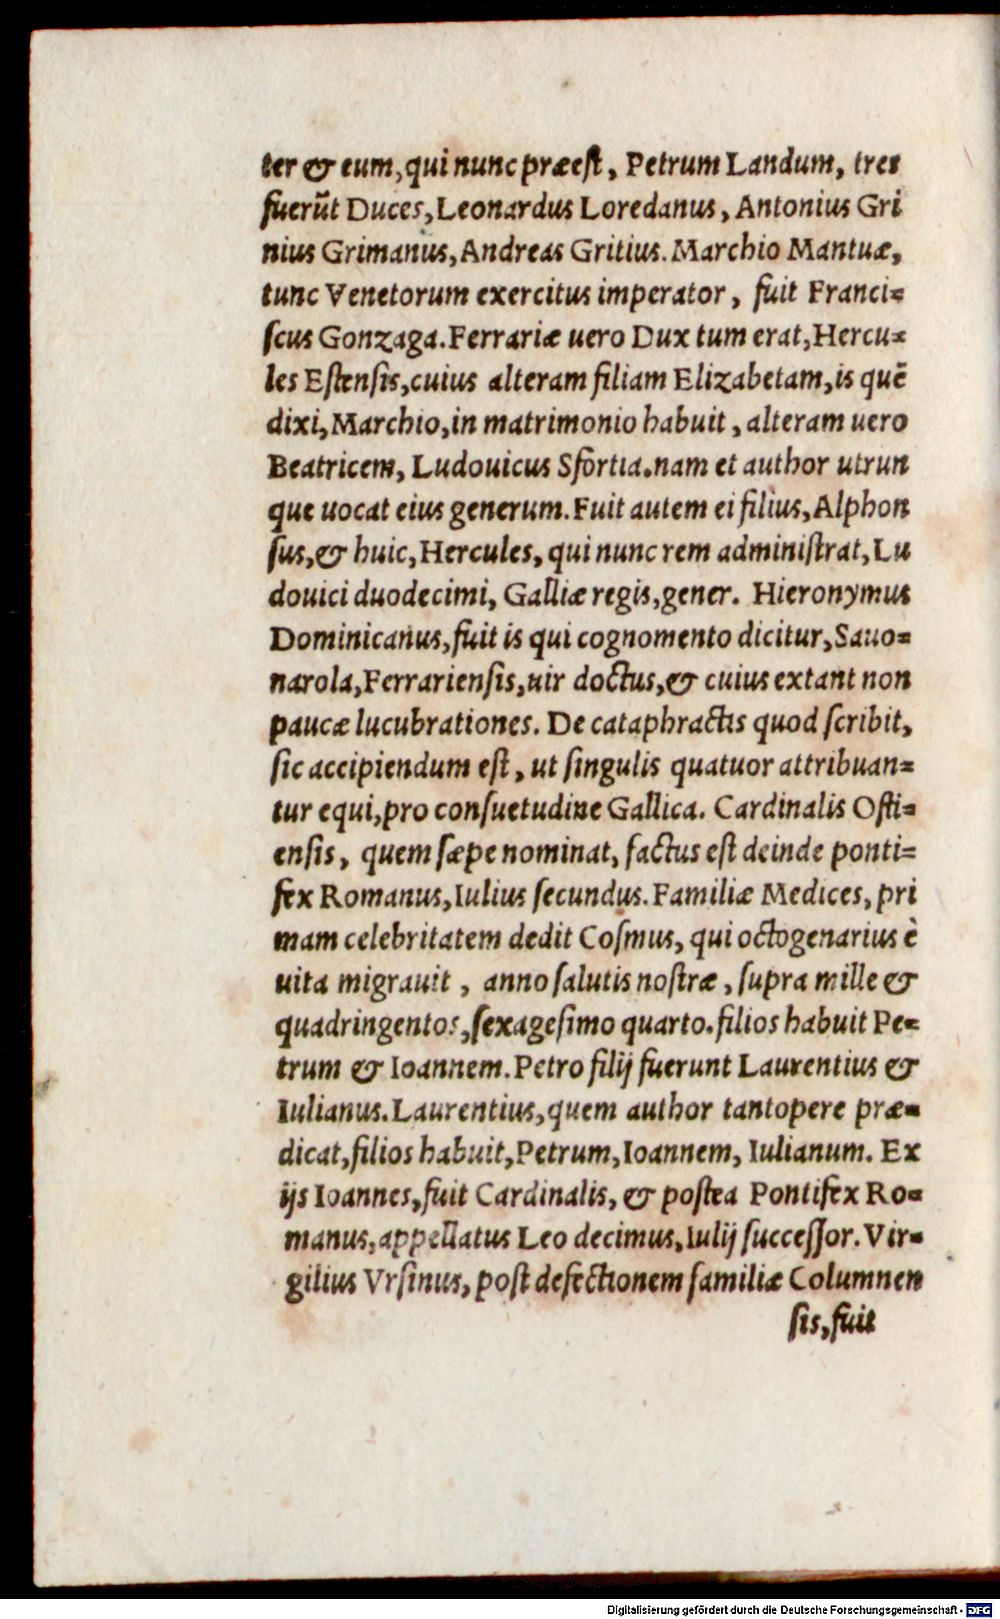 ter & eum, qui nunc præest, Petrum Landum, tres
fuerūt Duces, Leonardus Loredanus, Antonius Gri
nius Grimanus, Andreas Gritius. Marchio Mantuæ,
tunc Venetorum exercitus imperator, fuit Franci=
ſcus Gonzaga. Ferrariæ uero Dux tum erat, Hercu=
les Eſtenſis, cuius alteram filiam Elizabetam, is quē
dixi, Marchio, in matrimonio habuit, alteram uero
Beatricem, Ludouicus Sfortia. nam et author utrun
que uocat eius generum. Fuit autem ei filius, Alphon
ſus, & huic, Hercules, qui nunc rem adminiſtrat, Lu
douici duodecimi, Galliæ regis, gener. Hieronymus
Dominicanus, fuit is qui cognomento dicitur, Sauo=
narola, Ferrarienſis, uir doctus, & cuius extant non
paucæ lucubrationes. De cataphractis quod ſcribit,
ſic accipiendum eſt, ut ſingulis quatuor attribuan=
tur equi, pro conſuetudine Gallica. Cardinalis Oſti=
enſis, quem ſæpe nominat, factus eſt deinde ponti=
fex Romanus, Iulius ſecundus. Familiæ Medices, pri
mam celebritatem dedit Coſmus, qui octogenarius è
uita migrauit, anno ſalutis noſtræ, ſupra mille &
quadringentos, ſexageſimo quarto. filios habuit Pe=
trum & Ioannem. Petro filij fuerunt Laurentius &
Iulianus. Laurentius, quem author tantopere præ=
dicat, filios habuit, Petrum, Ioannem, Iulianum. Ex
ijs Ioannes, fuit Cardinalis, & poſtea Pontifex Ro=
manus, appellatus Leo decimus, Iulij ſucceſſor. Vir=
gilius Vrſinus, poſt defectionem familiæ Columnen
ſis, fuit
Digitalisierung gefördert durch die Deutsche Forschungsgemeinschaft - DFG